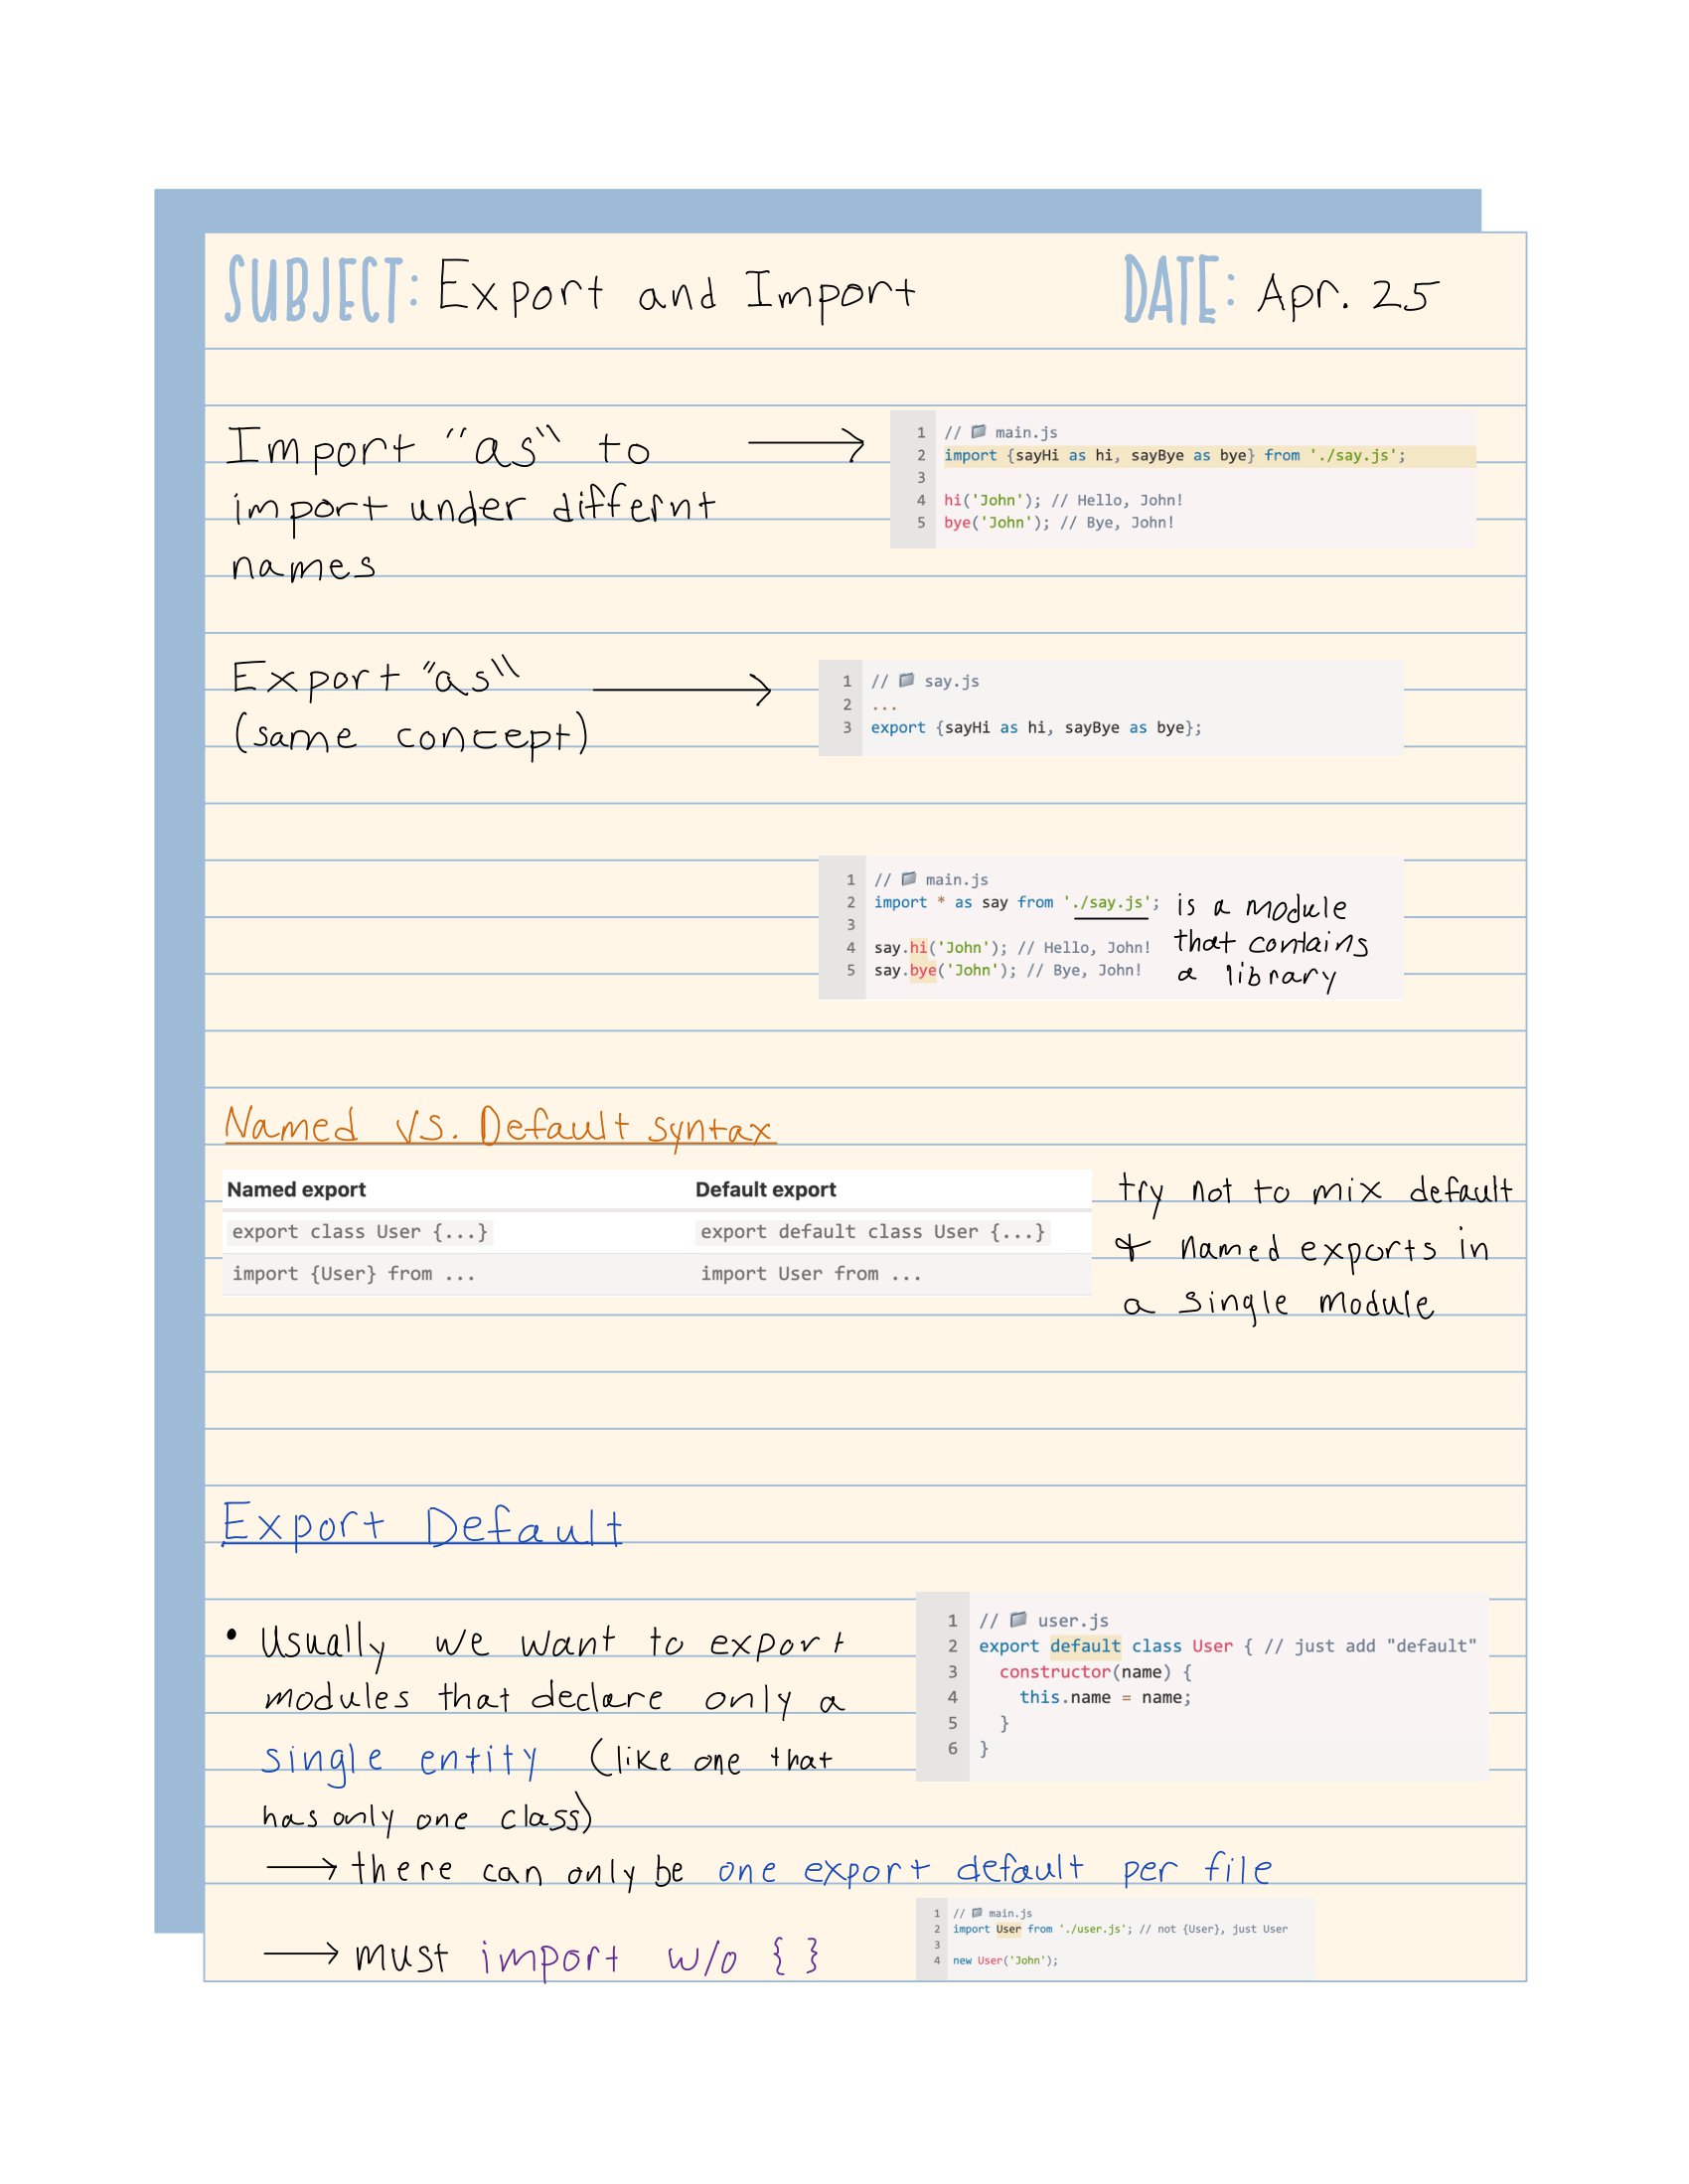 SUBJECT: Export and Import DATE: Apr. 25
Import "as" to
import under differnt
names
1 // main.js
2 import {sayHi as hi, sayBye as bye} from './say.js';
3
4 hi('John'); // Hello, John!
5 bye('John'); // Bye, John!
Export "as"
(same concept)
1 // say.js
2 ...
3 export {sayHi as hi, sayBye as bye};
1 // main.js
2 import * as say from './say.js';
3
4 say.hi('John'); // Hello, John!
5 say.bye('John'); // Bye, John!
is a module
that contains
a library
Named vs. Default syntax
Named export Default export
export class User {...} export default class User {...}
import {User} from ... import User from ...
try not to mix default
& named exports in
a single module
Export Default
• Usually we want to export
modules that declare only a
single entity (like one that
has only one class)
1 // user.js
2 export default class User { // just add "default"
3 constructor(name) {
4 this.name = name;
5 }
6 }
→ there can only be one export default per file
→ must import w/o { }
1 // main.js
2 import User from './user.js'; // not {User}, just User
3
4 new User('John');